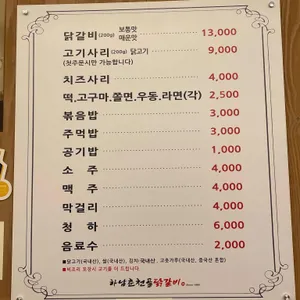 닭갈비(200g) 보통맛 매운맛 13,000
고기사리(200g) 닭고기 9,000
(첫주문시만 가능합니다)
치즈사리 4,000
떡.고구마.쫄면.우동.라면(각) 2,500
볶음밥 3,000
주먹밥 3,000
공기밥 1,000
소주 4,000
맥주 4,000
막걸리 4,000
청하 6,000
음료수 2,000
■닭고기(국내산), 쌀(국내산), 김치-국내산, 고춧가루(국내산, 중국산 혼합)